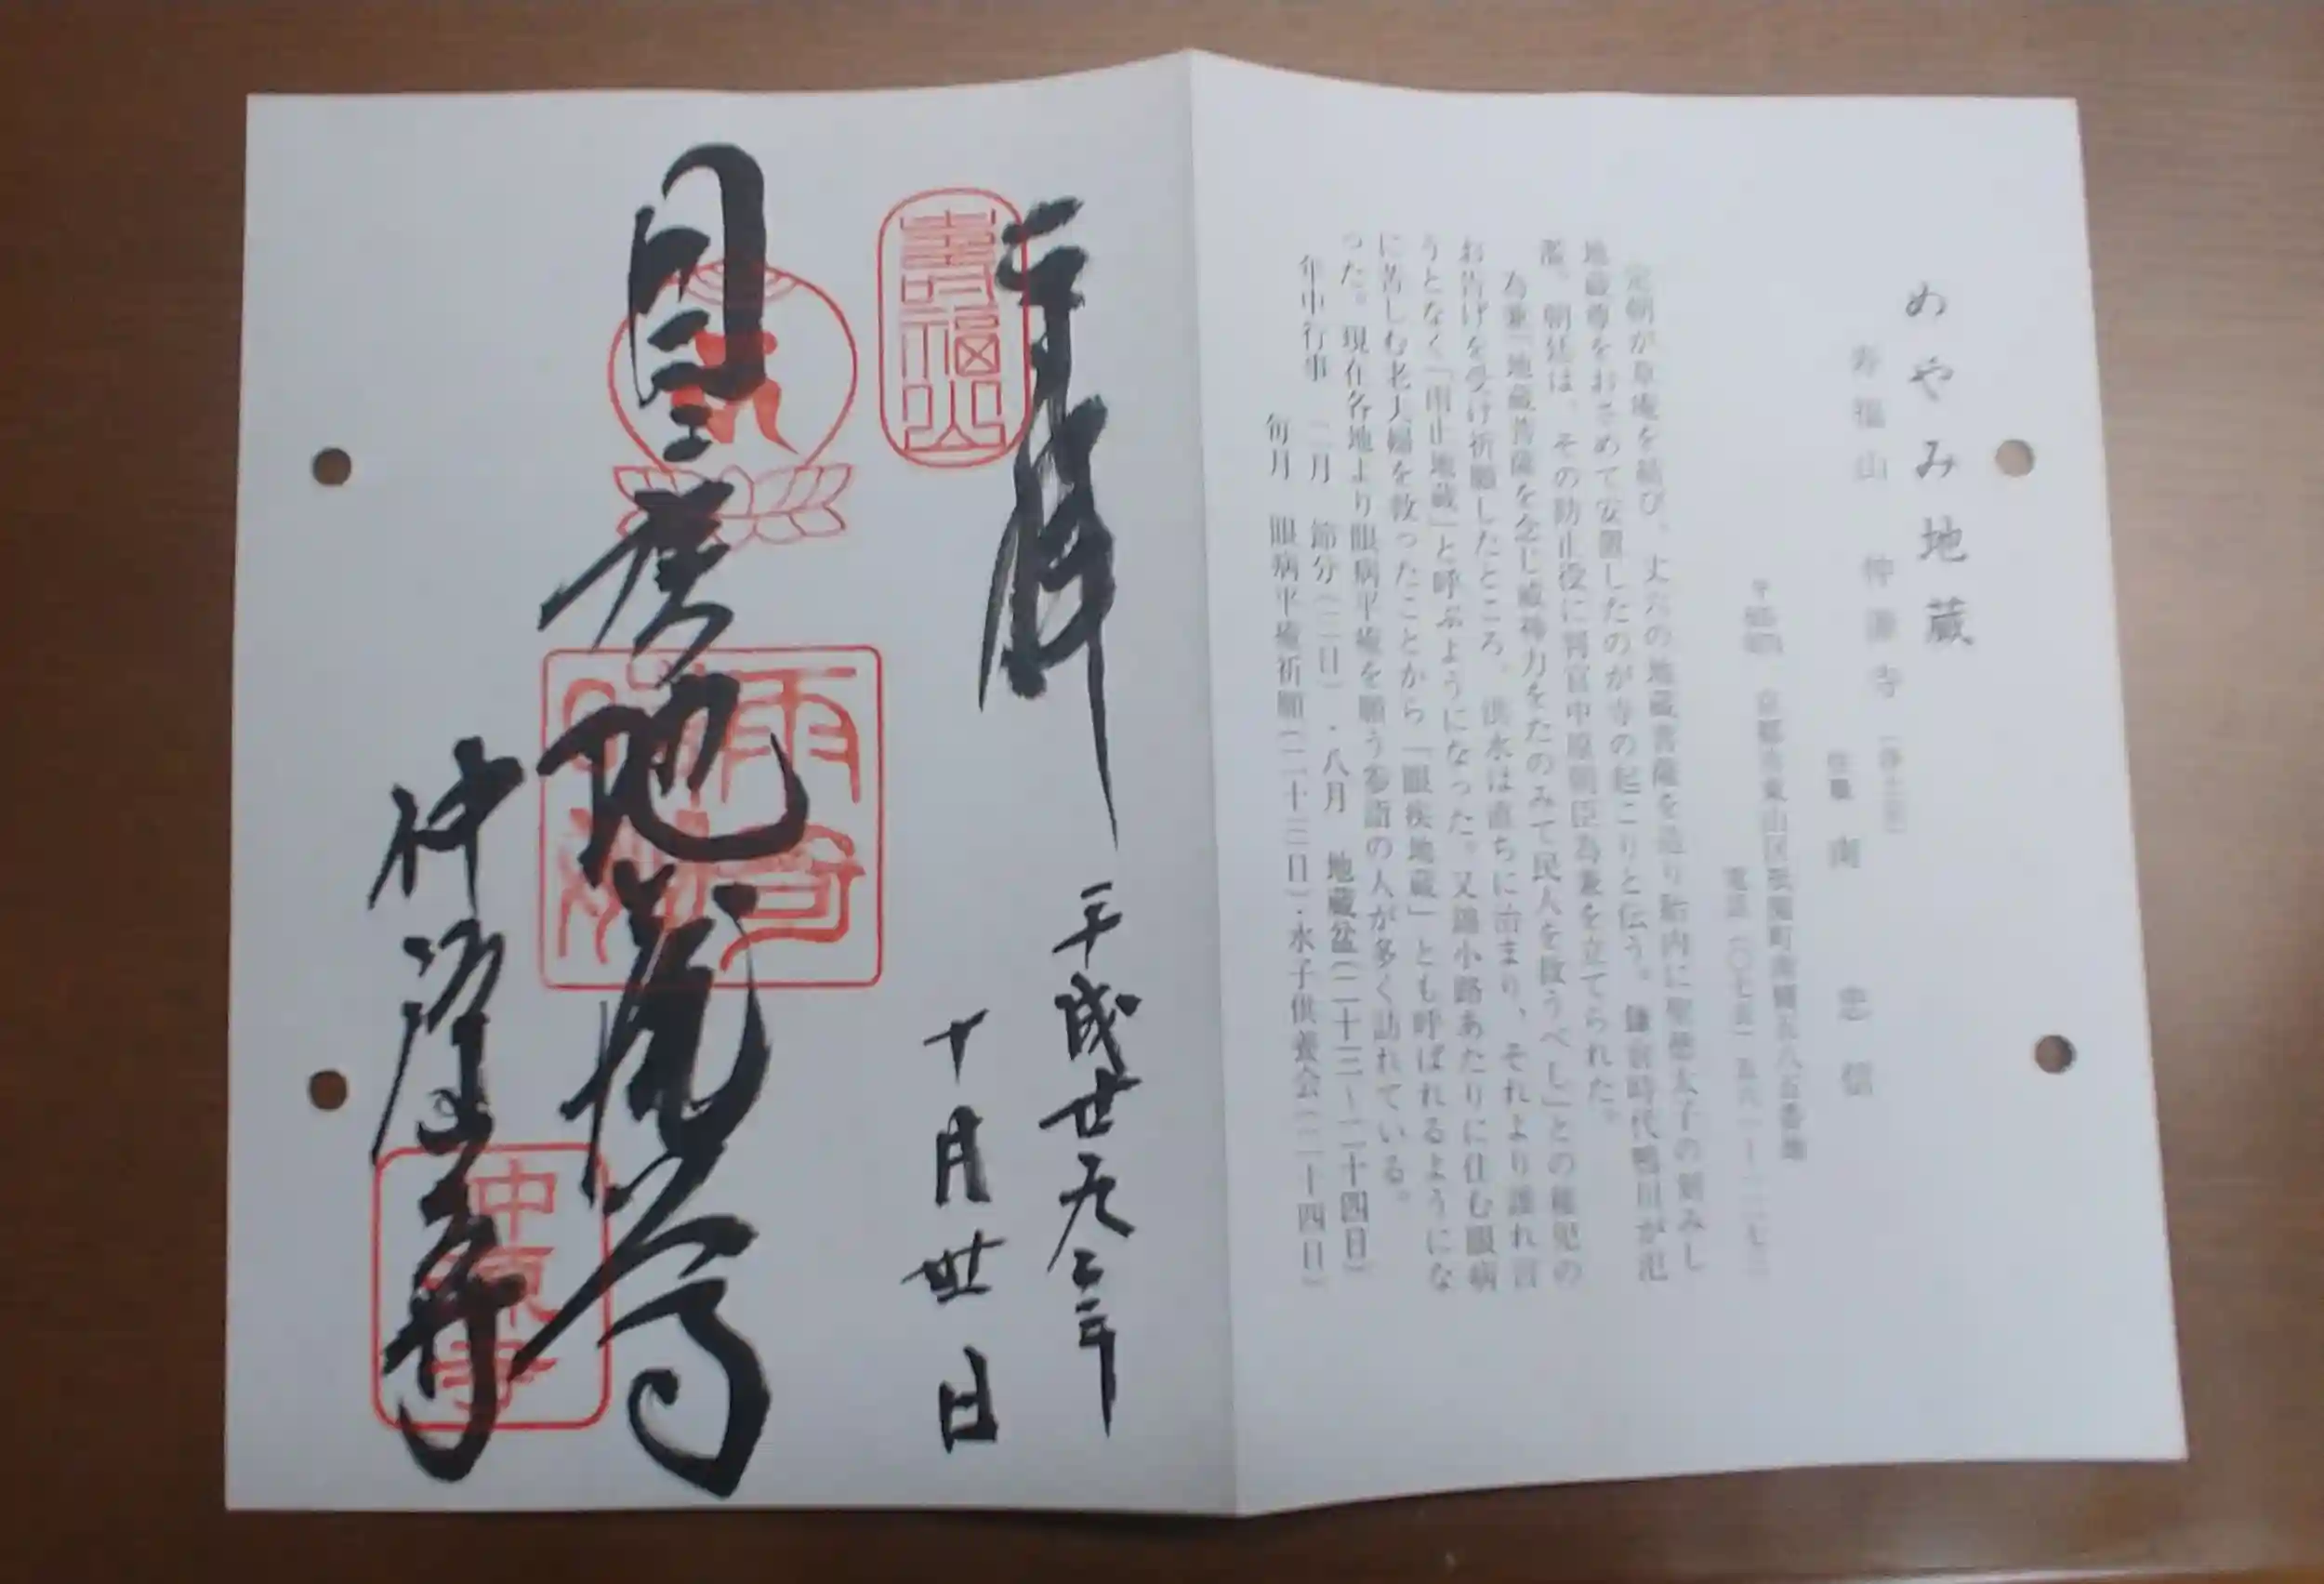 めやみ地蔵
寿福山 仲源寺 (浄土宗)
住職 南 忠信
京都市東山区祇園町南側五八五番地
定朝が草庵を結び、丈六の地蔵菩薩を造り胎内に聖徳太子の刻みし
地蔵尊をおさめて安置したのが寺の起こりと伝う。鎌倉時代鴨川が氾
濫、朝廷は、その防止役に判官中原朝臣為兼を立てられた。
為兼「地蔵菩薩を念じ威神力をたのみて民人を救うべし」との稚児の
お告げを受け祈願したところ、洪水は直ちに治まり、それより誰れ言
うとなく「雨止地蔵」と呼ぶようになった。又錦小路あたりに住む眼病
に苦しむ老夫婦を救ったことから「眼疾地蔵」とも呼ばれるようにな
った。現在各地より眼病平癒を願う参詣の人が多く訪れている。
年中行事 二月 節分(三日)・八月 地蔵盆(二十三〜二十四日)
毎月 眼病平癒祈願(二十三日)・水子供養会(二十四日)
奉拝 平成廿九年
十月廿日
寿福山
目疾地蔵尊
仲源寺